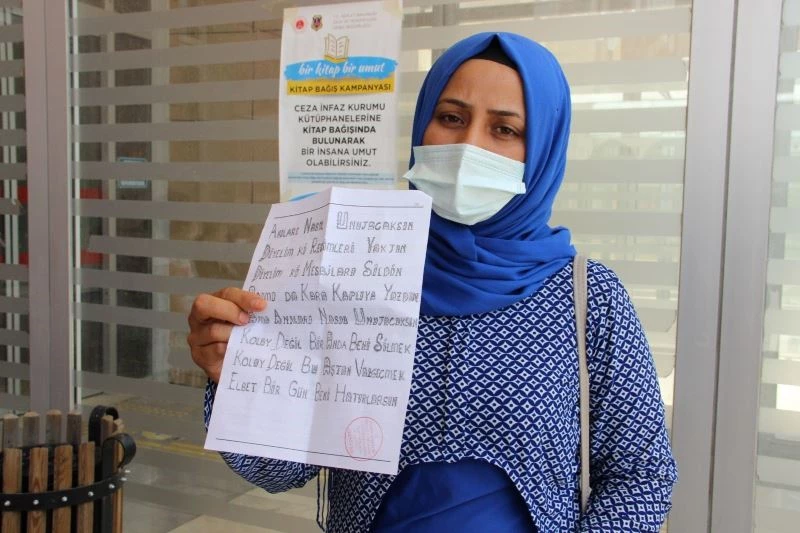 bir kitap bir umut
KİTAP BAĞIŞ KAMPANYASI
CEZA İNFAZ KURUMU
KÜTÜPHANELERİNE
KİTAP BAĞIŞINDA
BULUNARAK
BİR İNSANA UMUT
OLABİLİRSİNİZ.
ANOLARI NASIL UNUJACAKSON
DİYELİM Kİ RESİMLERİ YAKJON
DİYELİM Kİ MESAJLARO SİLDİN
DA KARA KAPLOYA YAZDON
ANOLARO NASOL UNUJACAKSON
KOLAY DEĞİL BİR ANDA BENİ SİLMEK
KOLAY DEĞİL BU AŞTAN VAZGEÇMEK
ELBET BİR GÜN BENİ HATORLARSON